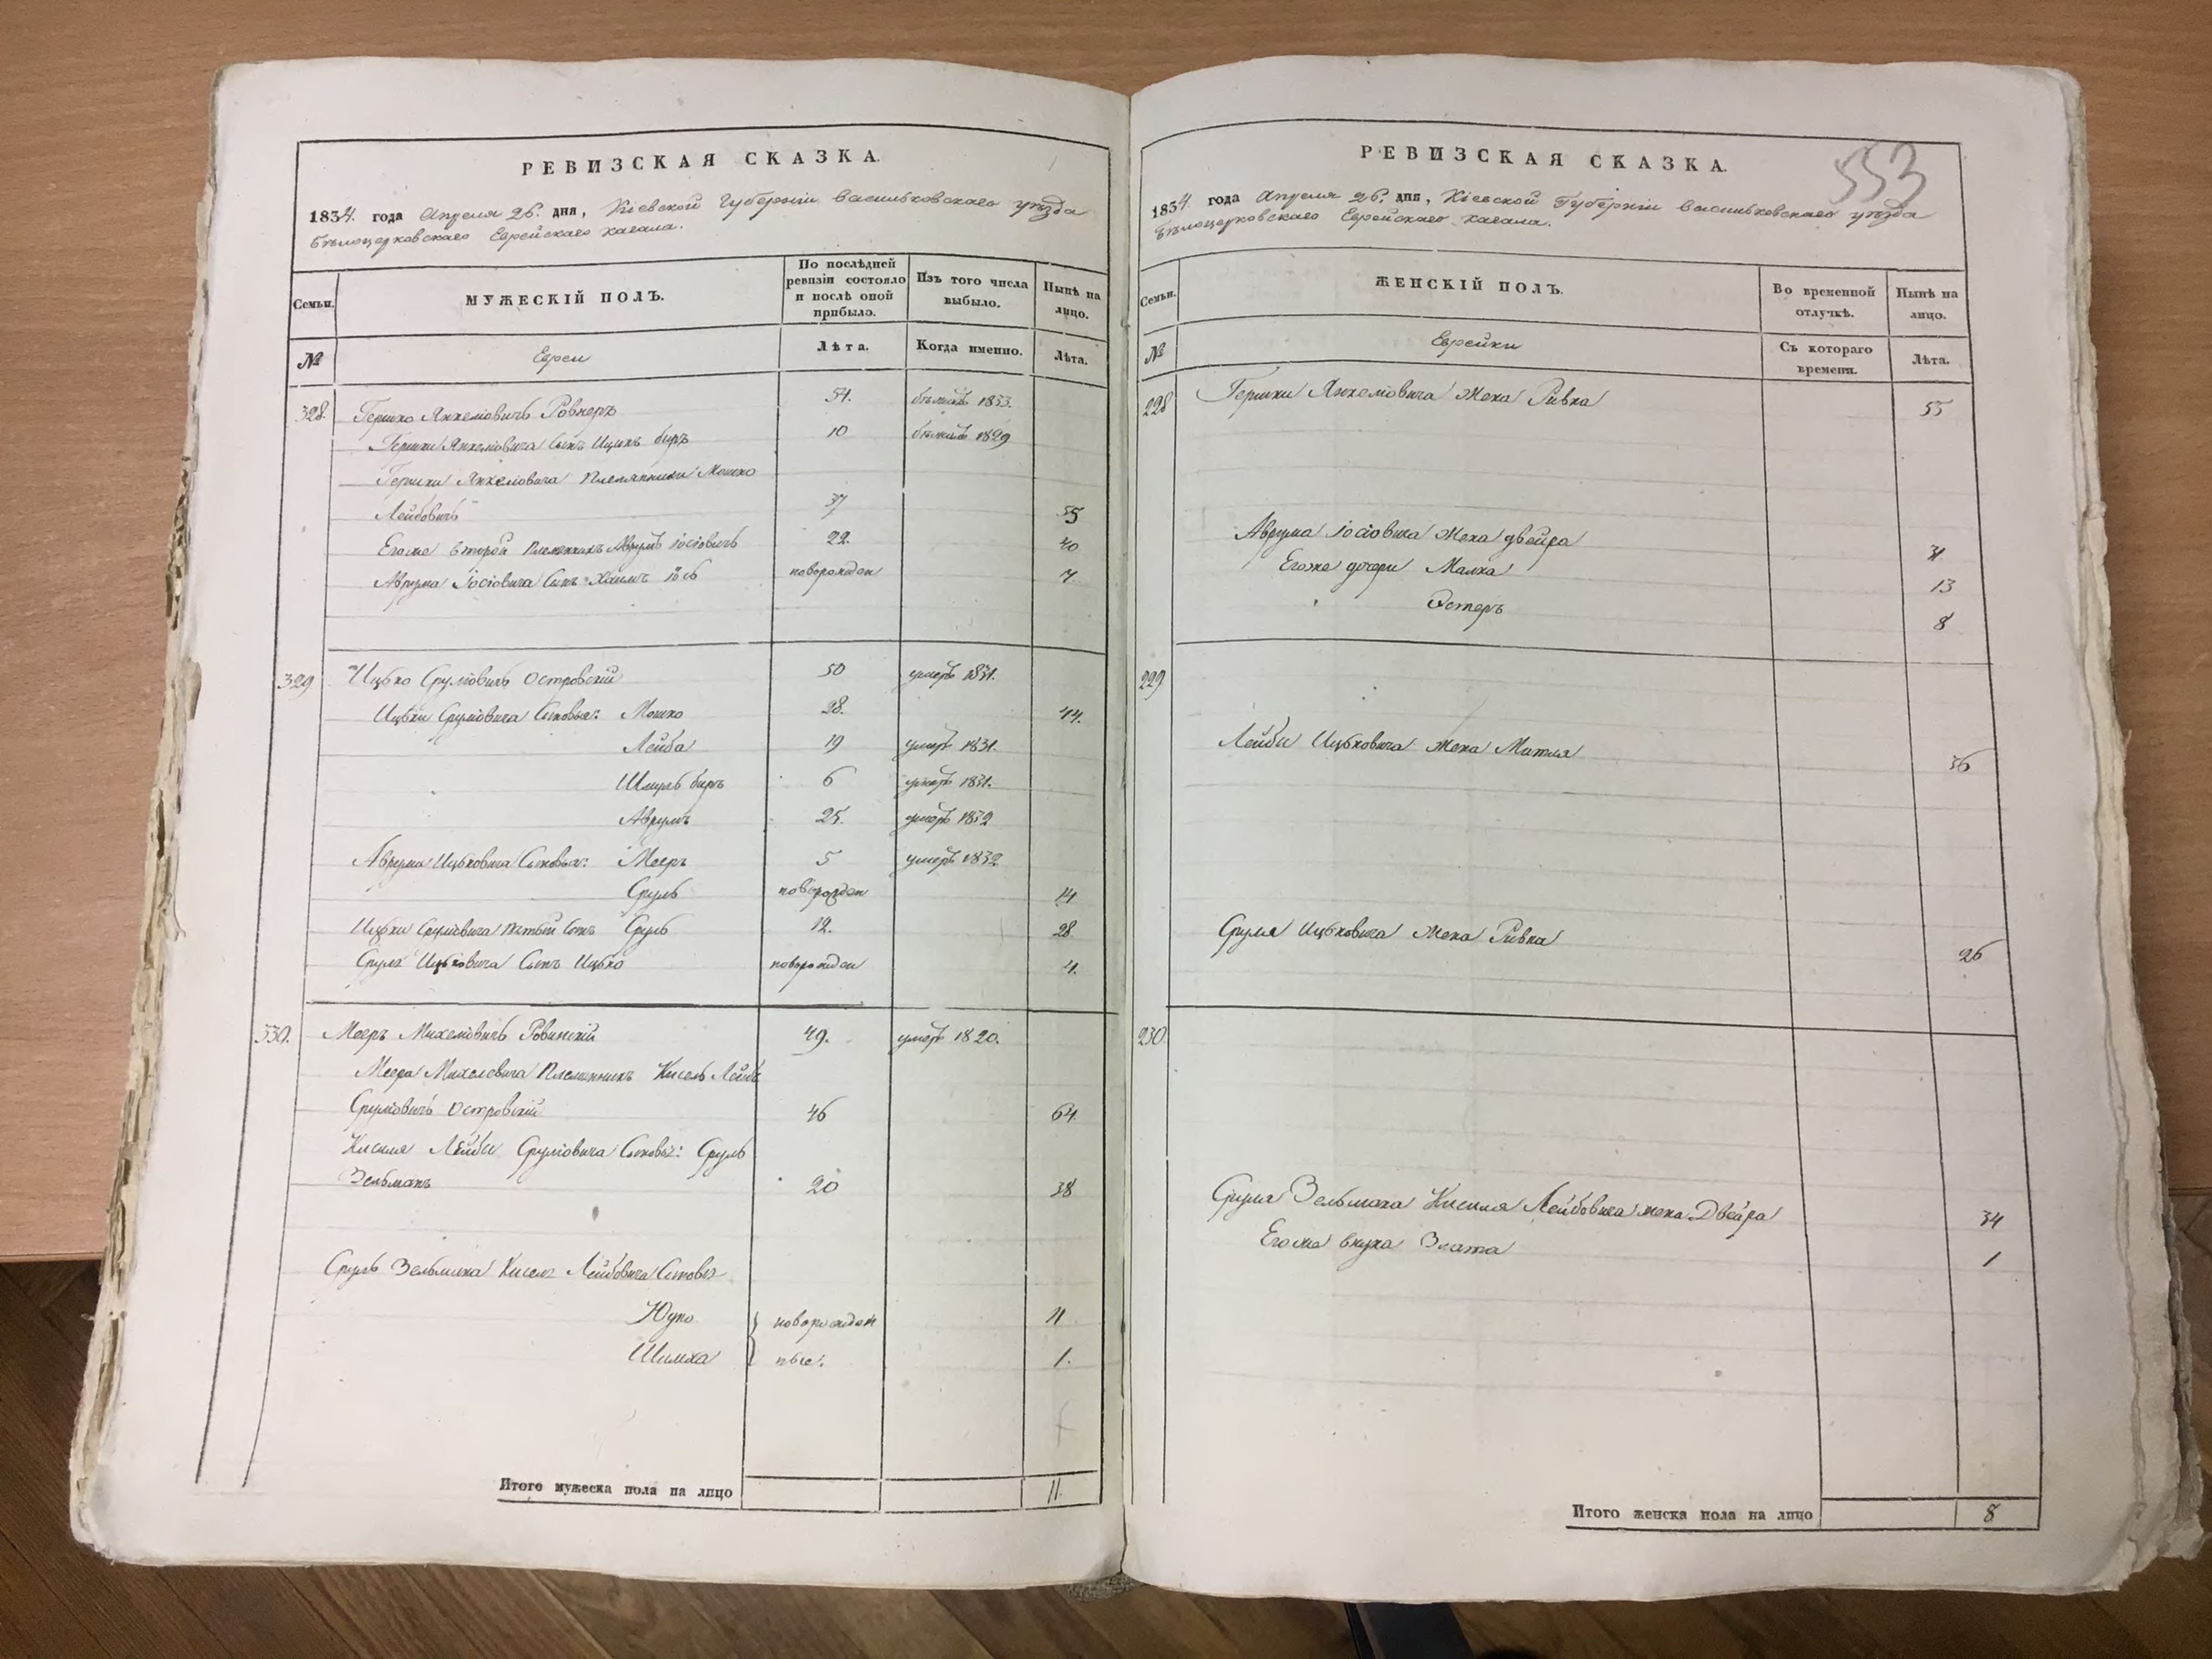 РЕВИЗСКАЯ СКАЗКА.
1834. года Апреля 26. дня, Кіевской Губерніи Васильковскаго уѣзда
Бѣлоцерковскаго Еврейскаго Кагала.
Семьи. МУЖЕСКІЙ ПОЛЪ. По послѣдней ревизіи состояло и послѣ оной прибыло. Изъ того числа выбыло. Нынѣ на лицо.
№ Евреи Лѣта. Когда именно. Лѣта.
328. Гершко Янкеловичъ Ровнеръ 54. 1833.
Гершки Янкеловича Сынъ Ицикъ беръ 10 1829
Гершки Янкеловича Племянники Мошко
Лейбовичъ 37 55
Егоже второй племянникъ Аврумъ Іосіовичъ 22. 40
Аврума Іосіовича Сынъ Хаимъ Іось новорожден 7
329 Ицько Сруліовичъ Островскій 50 умеръ 1831.
Ицьки Сруліовича Сыновья: Мошко 28. 44.
Лейба 19 умеръ 1831.
Шмуль беръ 6 умеръ 1831.
Аврумъ 25. умеръ 1832
Аврума Ицьковича Сыновья: Мееръ 5 умеръ 1832
Сруль новорожден 14
Ицьки Сруліовича пятый Сынъ Сруль 12. 28
Сруля Ицьковича Сынъ Ицько новорожден 4.
330. Мееръ Михеловичъ Ровинскій 49. умеръ 1820.
Меера Михеловича Племянникъ Кисель Лейба
Сруліовичъ Островскій 46 64
Кисиля Лейбы Сруліовича Сыновья: Сруль
Зельманъ 20 38
Сруль Зельмана Кисель Лейбовича Сыновья
Юдко новорожден 11
Шимха ные. 1.
Итого мужеска пола на лицо 11.
553
РЕВИЗСКАЯ СКАЗКА.
1834. года Апреля 26. дня, Кіевской Губерніи Васильковскаго уѣзда
Бѣлоцерковскаго Еврейскаго Кагала.
Семьи. ЖЕНСКІЙ ПОЛЪ. Во временной отлучкѣ. Нынѣ на лицо.
№ Еврейки Съ котораго времени. Лѣта.
228 Гершки Янкеловича Жена Ривка 55
Аврума Іосіовича Жена Двейра 31.
Егоже дочери Малка 13
Эстеръ 8
229
Лейбы Ицьковича Жена Матля 36
Сруля Ицьковича Жена Ривка 26
230.
Сруля Зельмана Кисиля Лейбовича жена Двейра 34
Егоже внука Злата 1
Итого женска пола на лицо 8